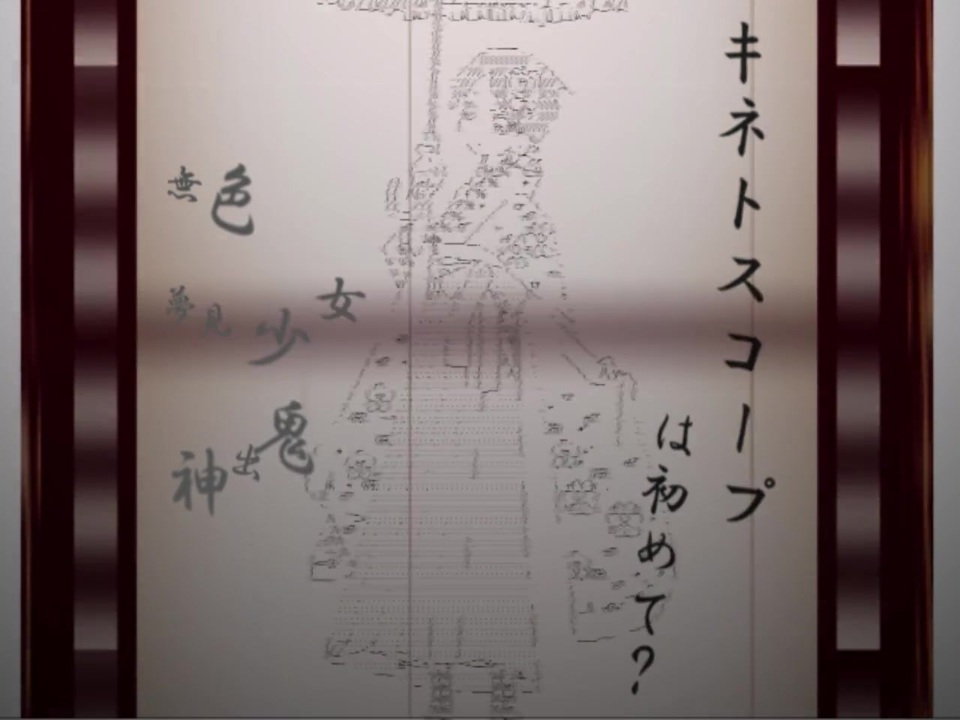 キネトスコープ
は初めて?
女
少
夢見
鬼
出
神
色
無